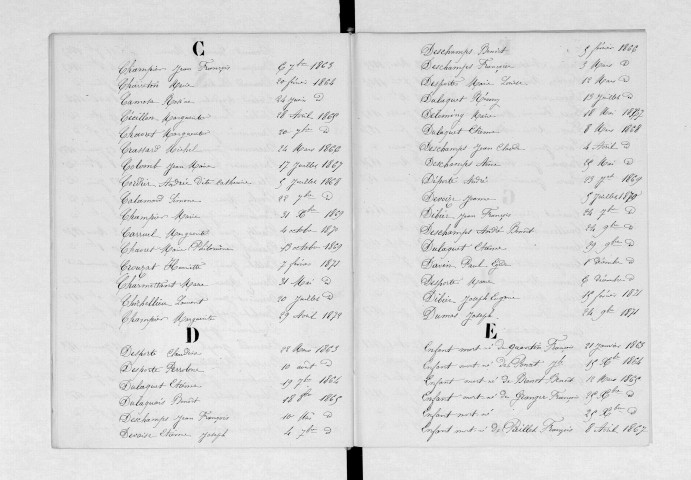 C
Champier Jean François 6 7bre 1863
Charretin Marie 20 février 1864
Camose Marie 24 juin d
Cécillon Marguerite 28 Avril 1865
Chavent Marguerite 20 9bre d
Crassard Michel 24 Mars 1866
Colomb Jean Marie 17 Juillet 1867
Cordier Andrée dite Catherine 5 Juillet 1868
Calamard Simone 28 9bre d
Champier Marie 31 Xbre 1869
Carruel Marguerite 4 octobre 1870
Chavent Marie Philomène 13 octobre 1869
Crouzat Henriette 7 février 1871
Charmettant Marie 31 Mai d
Chapellier Laurent 20 Juillet d
Champier Marguerite 29 Avril 1872
D
Desporte Claudine 28 Mars 1863
Desporte Perrotine 10 août d
Dulaquet Etienne 19 7bre 1864
Dulaquais Benoît 18 1865
Deschamps Jean François 10 Mai d
Etienne Joseph 4 7bre d
Deschamps Benoît 5 février 1866
Deschamps François 3 Mars d
Desporte Marie Louise 12 Mars d
Dulaquet Rémy 13 Juillet d
Marie 18 Mai 1867
Dulaquet Etienne 8 Mars 1868
Deschamps Jean Claude 4 Avril d
Deschamps Aimé 25 Mai d
Déporte André 23 1869
Jeanne 5 Juillet 1870
Débié Jean François 24 7bre d
Deschamps André Benoît 24 9bre d
Dulaquet Etienne 29 9bre d
Paul 1 décembre d
Desporte Marie 6 décembre d
Débié Joseph 15 février 1871
Dumas Joseph 24 9bre 1871
E
Enfant mort né de Quantin François 21 janvier 1863
Enfant mort né de 15 Xbre 1864
Enfant mort né de Benoît 12 Mars 1865
Enfant mort né de Granger François 25 Xbre d
Enfant mort né 25 Xbre d
Enfant mort né de Paillet François 8 Avril 1867